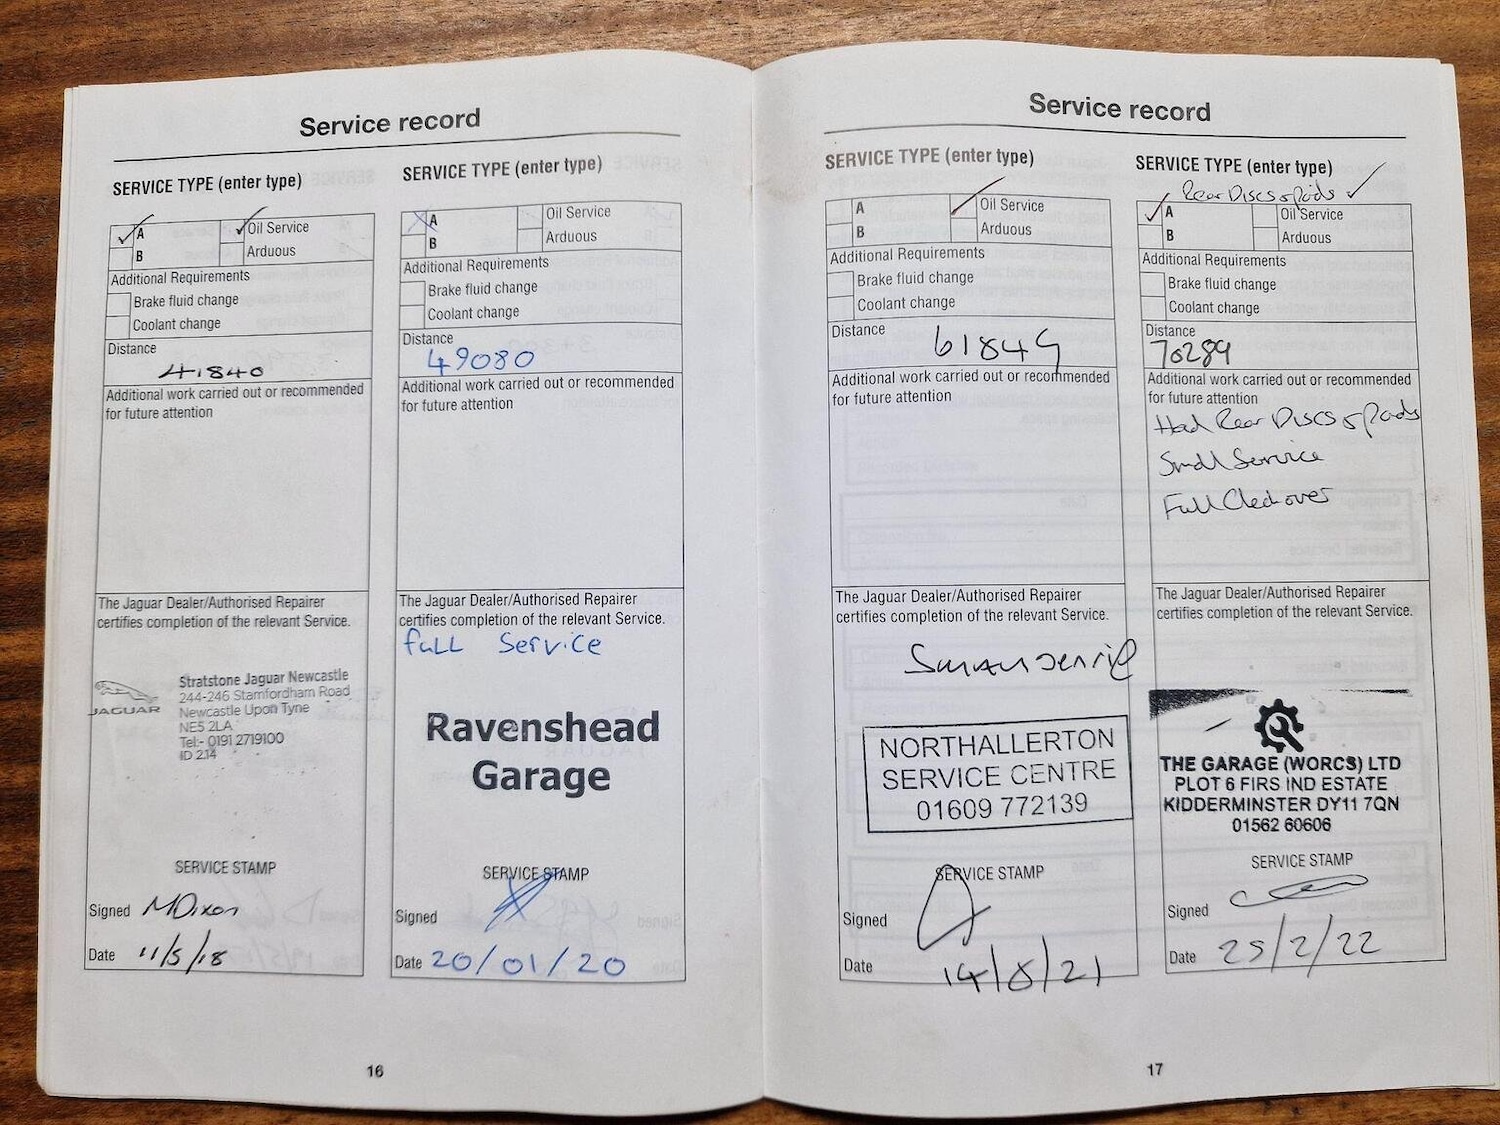 Service record
SERVICE TYPE (enter type)
A
Oil Service
B
Arduous
Additional Requirements
Brake fluid change
Coolant change
Distance
41840
Additional work carried out or recommended
for future attention
The Jaguar Dealer/Authorised Repairer
certifies completion of the relevant Service.
JAGUAR
Stratstone Jaguar Newcastle
244-246 Stamfordham Road
Newcastle Upon Tyne
NE5 2LA
Tel:- 0191 2719100
ID 2.14
SERVICE STAMP
Signed MDixon
Date 11/5/18
SERVICE TYPE (enter type)
A
Oil Service
B
Arduous
Additional Requirements
Brake fluid change
Coolant change
Distance
49080
Additional work carried out or recommended
for future attention
The Jaguar Dealer/Authorised Repairer
certifies completion of the relevant Service.
full Service
Ravenshead
Garage
SERVICE STAMP
Signed
Date 20/01/20
16
Service record
SERVICE TYPE (enter type)
A
Oil Service
B
Arduous
Additional Requirements
Brake fluid change
Coolant change
Distance
61849
Additional work carried out or recommended
for future attention
The Jaguar Dealer/Authorised Repairer
certifies completion of the relevant Service.
NORTHALLERTON
SERVICE CENTRE
01609 772139
SERVICE STAMP
Signed
Date 14/8/21
SERVICE TYPE (enter type)
Rear Discs & Pads
A
Oil Service
B
Arduous
Additional Requirements
Brake fluid change
Coolant change
Distance
70289
Additional work carried out or recommended
for future attention
Had Rear Discs & Pads
Small Service
Full Check over
The Jaguar Dealer/Authorised Repairer
certifies completion of the relevant Service.
THE GARAGE (WORCS) LTD
PLOT 6 FIRS IND ESTATE
KIDDERMINSTER DY11 7QN
01562 60606
SERVICE STAMP
Signed
Date 25/2/22
17